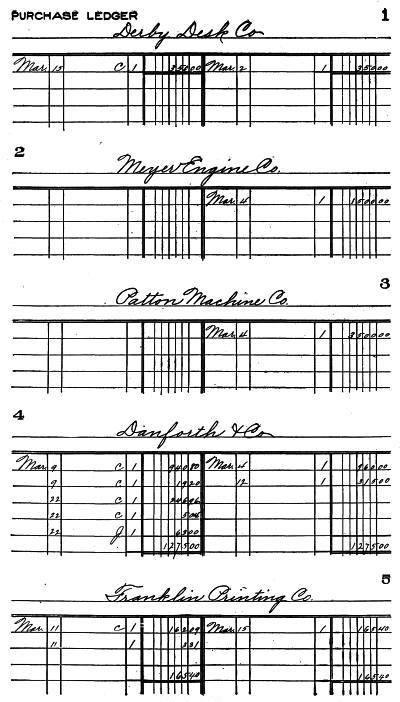 PURCHASE LEDGER 1
Derby Desk Co
Mar. 15 C 1 350 00 Mar. 2 1 350 00
2
Meyer Engine Co.
Mar. 4 1 1500 00
3
Patton Machine Co.
Mar. 4 1 3500 00
4
Danforth & Co
Mar. 9 C 1 940 80 Mar. 4 1 960 00
9 C 1 19 20 12 1 315 00
22 C 1 246 96
22 C 1 5 04
22 J 1 63 00
1275 00 1275 00
5
Franklin Printing Co.
Mar. 11 C 1 162 09 Mar. 15 1 165 40
11 1 3 31
165 40 165 40